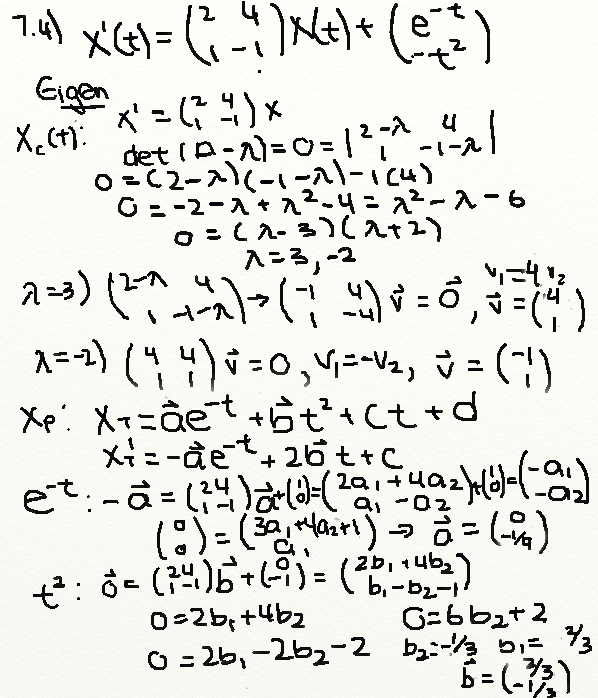 7.4) x'(t) = (2 4; 1 -1) x(t) + (e^-t; -t^2)
Eigen
X_c(t): x' = (2 4; 1 -1) x
det(A-λ) = 0 = |2-λ 4; 1 -1-λ|
0 = (2-λ)(-1-λ) - 1(4)
0 = -2 - λ + λ^2 - 4 = λ^2 - λ - 6
0 = (λ-3)(λ+2)
λ = 3, -2
λ=3) (2-λ 4; 1 -1-λ) → (-1 4; 1 -4) v⃗ = 0⃗, v_1 = 4v_2 v⃗ = (4; 1)
λ=-2) (4 4; 1 1) v⃗ = 0, v_1 = -v_2, v⃗ = (-1; 1)
X_p: X_T = a⃗e^-t + b⃗t^2 + ct + d
X_T' = -a⃗e^-t + 2b⃗t + c
e^-t: -a⃗ = (2 4; 1 -1) a⃗ + (1; 0) = (2a_1 + 4a_2; a_1 - a_2) + (1; 0) = (-a_1; -a_2)
(0; 0) = (3a_1 + 4a_2 + 1; a_1) → a⃗ = (0; -1/4)
t^2: 0⃗ = (2 4; 1 -1) b⃗ + (0; -1) = (2b_1 + 4b_2; b_1 - b_2 - 1)
0 = 2b_1 + 4b_2 0 = 6b_2 + 2
0 = 2b_1 - 2b_2 - 2 b_2 = -1/3 b_1 = 2/3
b⃗ = (2/3; -1/3)